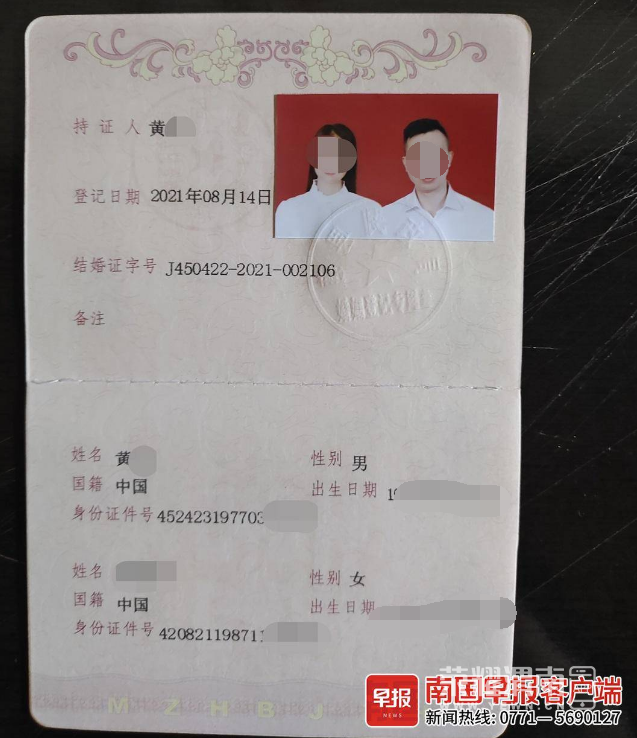 持证人 黄
登记日期 2021年08月14日
结婚证字号 J450422-2021-002106
备注
姓名 黄 性别 男
国籍 中国 出生日期 1
身份证件号 452423197703
姓名 性别 女
国籍 中国 出生日期
身份证件号 42082119871
MZHBJ
早报 南国早报客户端
NEWS 新闻热线: 0771—5690127